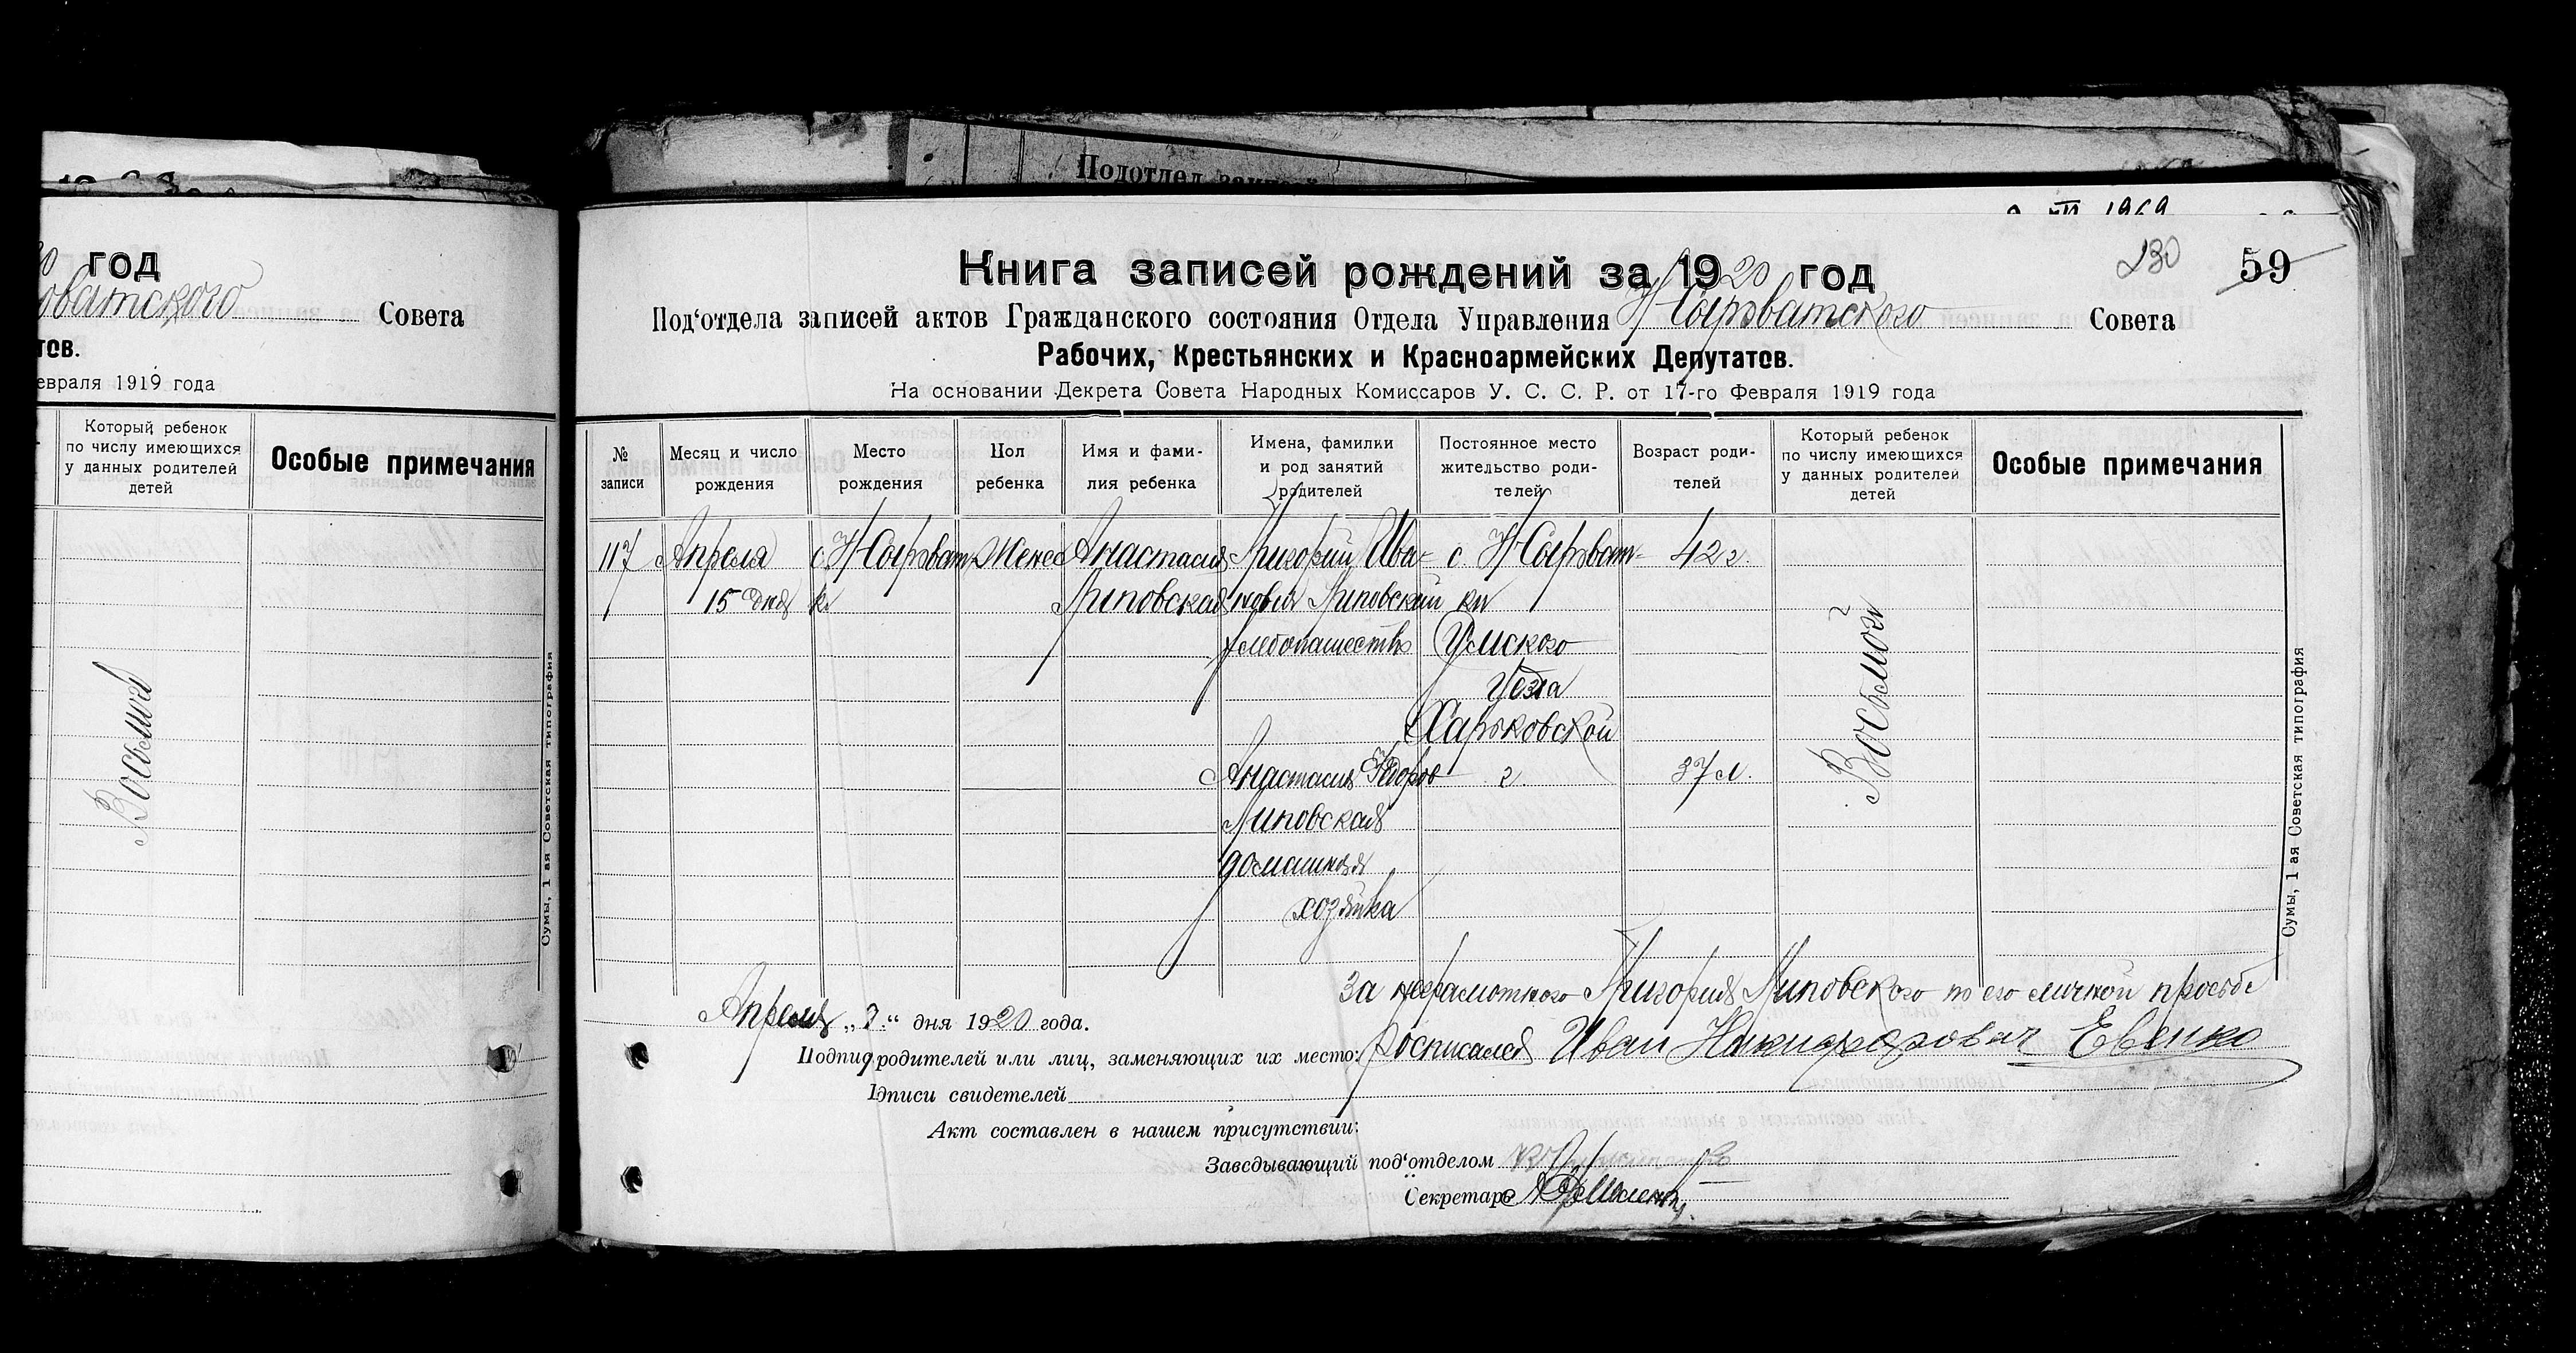 год
оватского Совета
тов.
евраля 1919 года
Который ребенок
по числу имеющихся
у данных родителей
детей
Особые примечания
Восьмой
Сумы, 1 ая Советская типография
Подотдел
1969
230
59
Книга записей рождений за 1920 год
Под‘отдела записей актов Гражданского состояния Отдела Управления Н Сыроватского Совета
Рабочих, Крестьянских и Красноармейских Депутатов.
На основании Декрета Совета Народных Комиссаров У. С. С. Р. от 17-го Февраля 1919 года
№ записи
Месяц и число рождения
Место рождения
Пол ребенка
Имя и фами-
лия ребенка
Имена, фамилии
и род занятий
родителей
Постоянное место
жительство роди-
телей
Возраст роди-
телей
Который ребенок
по числу имеющихся
у данных родителей
детей
Особые примечания
117
Апреля
15 дня
с. Н Сыроват
ка
Женс
Анастасия
Липовская
Григорий Ива-
нович Липовский
хлебопашество
с. Н Сыроват-
ки
Сумского
уезда
Харьковской
г.
42 г.
Восьмой
Анастасия Федоров
Липовская
домашняя
хозяйка
37 л.
Сумы, 1 ая Советская типография
За неграмотного Григория Липовского по его личной просьбе
Апреля „ “ дня 1920 года.
Подпид родителей или лиц, заменяющих их место: Росписался Иван Никифорович Евенко
дписи свидетелей
Акт составлен в нашем присутствии:
Заведывающий под‘отделом
Секретарь